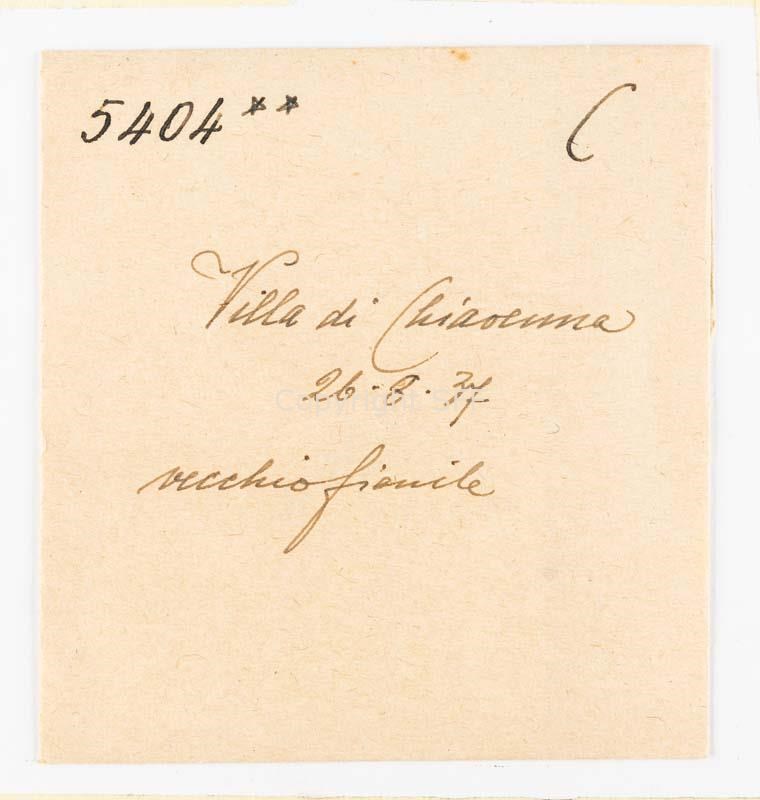 5404** C
Villa di Chiavenna
26.8.37
vecchio fienile